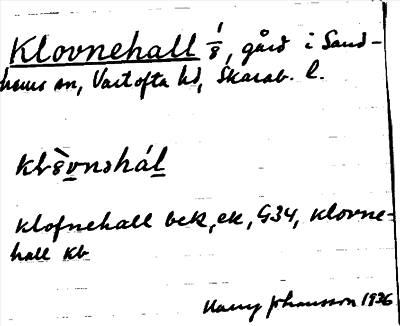 Klovnehall 1/8, gård i Sand-
hems sn, Vartofta hd, Skarab. l.
klofnehall bek, ek, G34, Klovne-
hall kb
Harry Johansson 1936